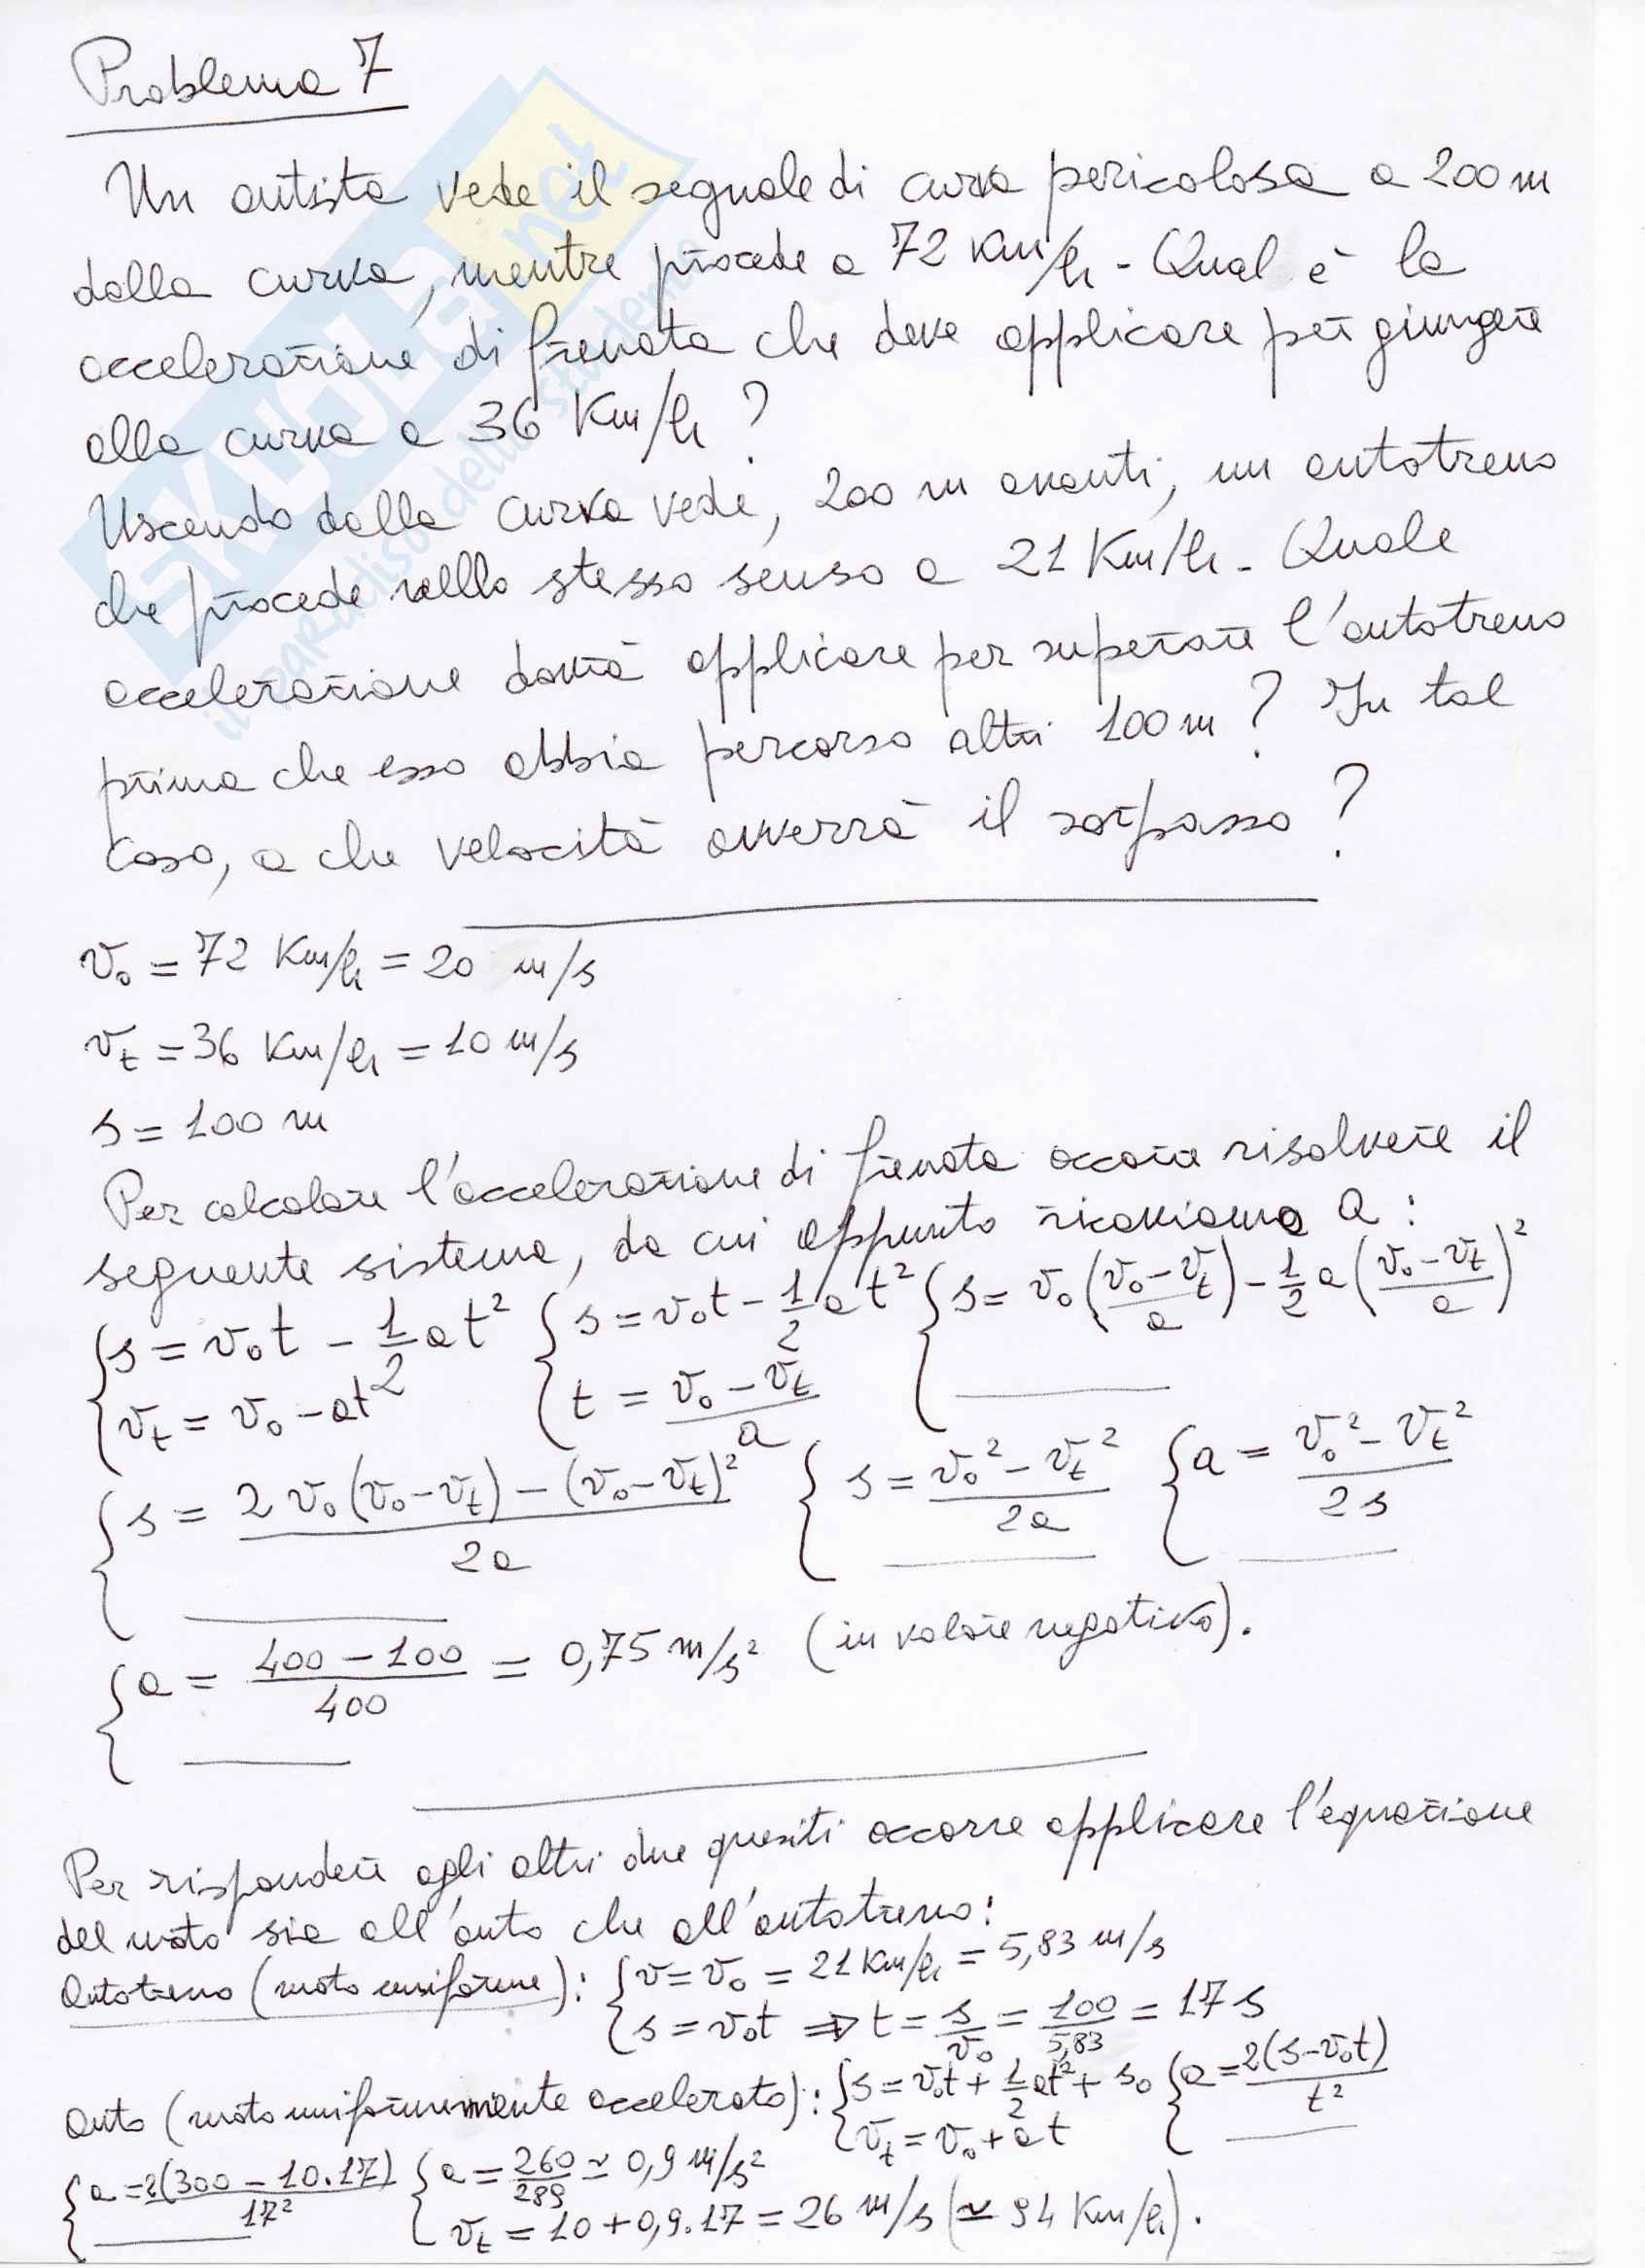 Problema 7
Un autista vede il segnale di curva pericolosa a 200 m
dalla curva, mentre procede a 72 Km/h - Qual è la
accelerazione di frenata che deve applicare per giungere
alla curva a 36 Km/h ?
Uscendo dalla curva vede, 200 m avanti, un autotreno
che procede nello stesso senso a 21 Km/h - Quale
accelerazione dovrà applicare per superare l'autotreno
prima che esso abbia percorso altri 100 m ? In tal
caso, a che velocità avverrà il sorpasso ?
v₀ = 72 Km/h = 20 m/s
vₜ = 36 Km/h = 10 m/s
s = 100 m
Per calcolare l'accelerazione di frenata occorre risolvere il
seguente sistema, da cui appunto ricaviamo a :
{ s = v₀t - 1/2 at² { s = v₀t - 1/2 at² { s = v₀ ((v₀ - vₜ)/a) - 1/2 a ((v₀ - vₜ)/a)²
vₜ = v₀ - at² t = (v₀ - vₜ)/a
{ s = (2 v₀ (v₀ - vₜ) - (v₀ - vₜ)²)/2a { s = (v₀² - vₜ²)/2a { a = (v₀² - vₜ²)/2s
{ a = (400 - 100)/400 = 0,75 m/s² (in valore negativo).
Per rispondere agli altri due quesiti occorre applicare l'equazione
del moto sia all'auto che all'autotreno:
Autotreno (moto uniforme): { v = v₀ = 21 Km/h = 5,83 m/s
s = v₀t ⇒ t = s/v₀ = 100/5,83 = 17 s
Auto (moto uniformemente accelerato): { s = v₀t + 1/2 at² + s₀ { a = 2(s - v₀t)/t²
vₜ = v₀ + at
{ a = 2(300 - 10.17)/17² { a = 260/289 ≃ 0,9 m/s²
vₜ = 10 + 0,9.17 = 26 m/s (≃ 94 Km/h).
SKUOLA.net
il paradiso dello studente